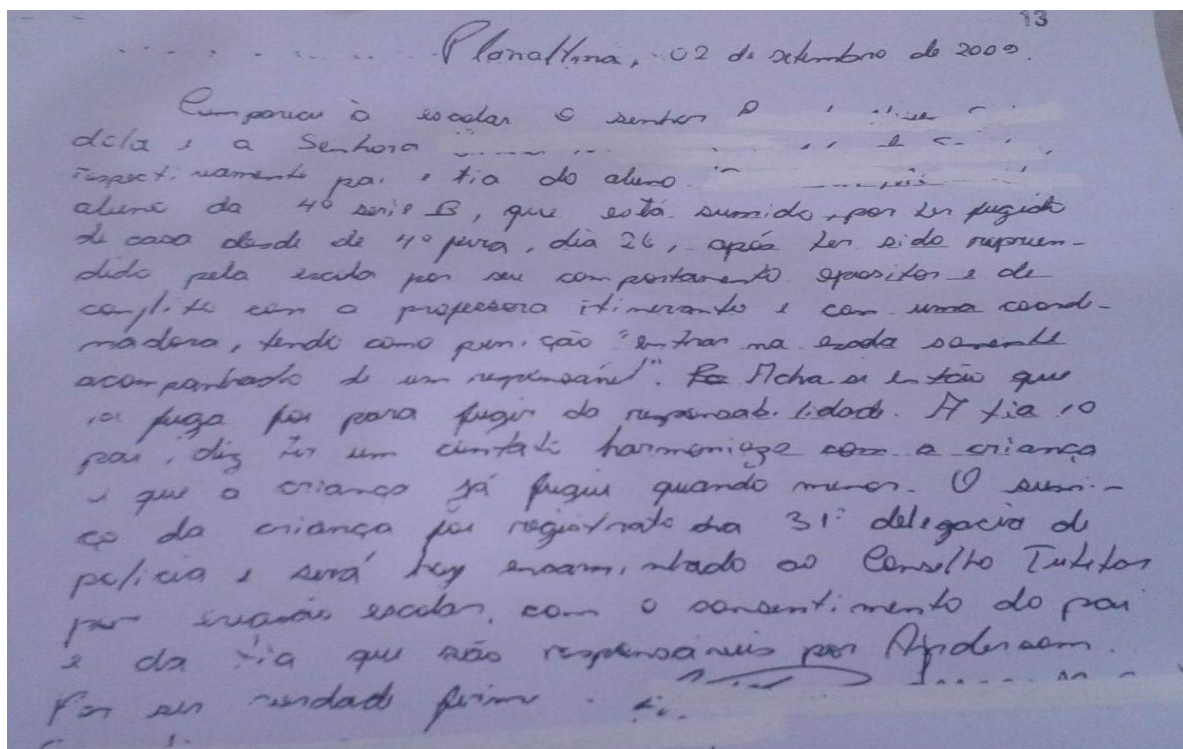 13
Planaltina, 02 de setembro de 2009.
Compareceu à escolar o senhor
dila e a Senhora
respectivamente pai e tia do aluno
aluno da 4ª serie B, que está sumido, por ter fugido
de casa desde de 4ª feira, dia 26, após ter sido repreen-
dido pela escola por seu comportamento opositor e de
conflito com a professora itinerante e com uma coord-
nadora, tendo como punição "entrar na escola somente
acompanhado de um responsável". Acha se então que
a fuga foi para fugir da responsabilidade. A tia
pai, diz ter um contato harmonioso com a criança
e que a criança já fugiu quando menor. O sumi-
ço da criança foi registrado na 31ª delegacia de
policia e será hoje encaminhado ao Conselho Tutelar
por evasão escolar, com o consentimento do pai
e da tia que são responsáveis por Andersom.
Por ser verdade firmo